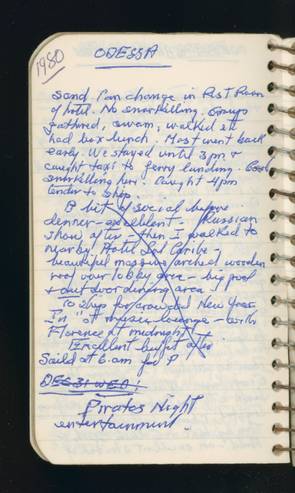 1980
ODESSA
sand. Can change in Rest Room
of hotel. No snorkelling. Group
gathred, swam, walked etc
had box lunch. Most went back
early. We stayed until 3pm &
caught taxi to ferry landing. Good
snorkelling here. Caught 4pm
tender to ship.
A bit of social before
dinner - excellent. Russian
show after - then I walked to
nearby Hotel Caribe -
beautiful massive arched wooden
roof over lobby area - big pool
& outdoor dining area.
To ship for New Years
In "music lounge - with
Florence at midnight
Excellent buffet after
Sailed at 6am for P
DEC 31 WED:
Pirates Night
entertainment.